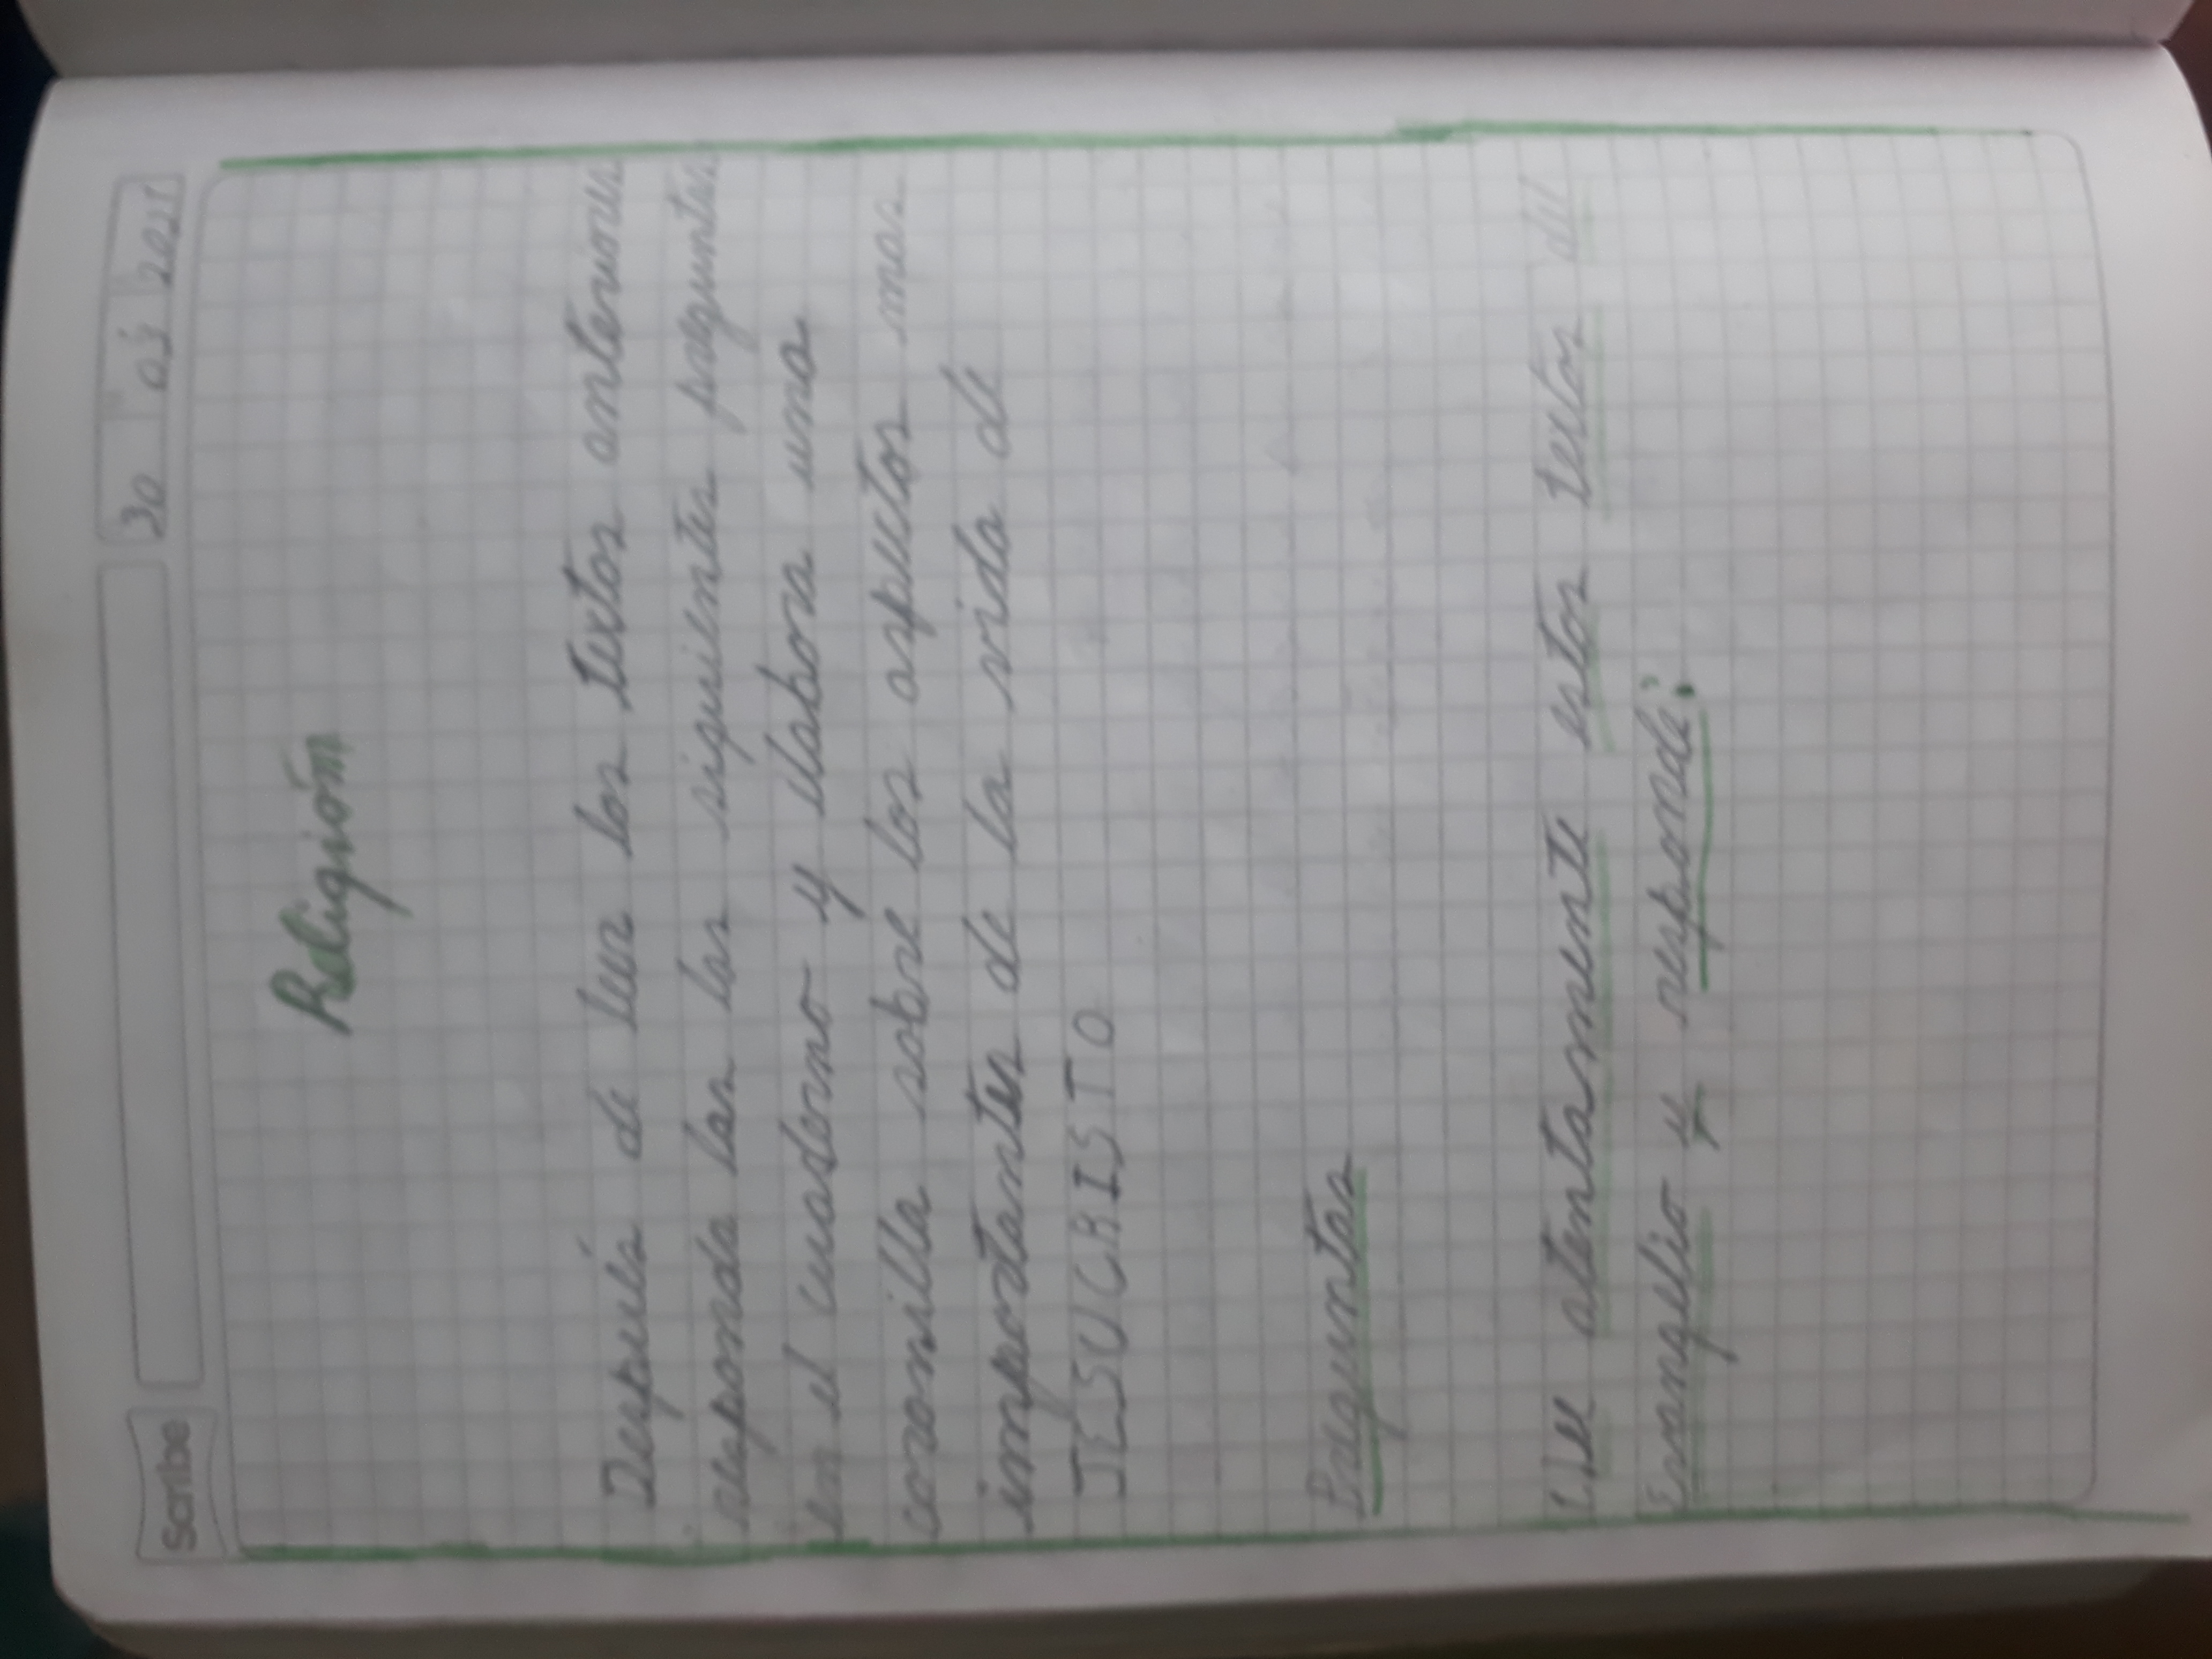 Scribe
30 03 2021
Religión
Después de leer los textos anteriores
responda las las siguientes preguntas
en el cuaderno y elabora una
coronilla sobre los aspectos mas
importantes de la vida de
JESUCRISTO
Preguntas
Lee atentamente estos textos del
Evangelio y responde: